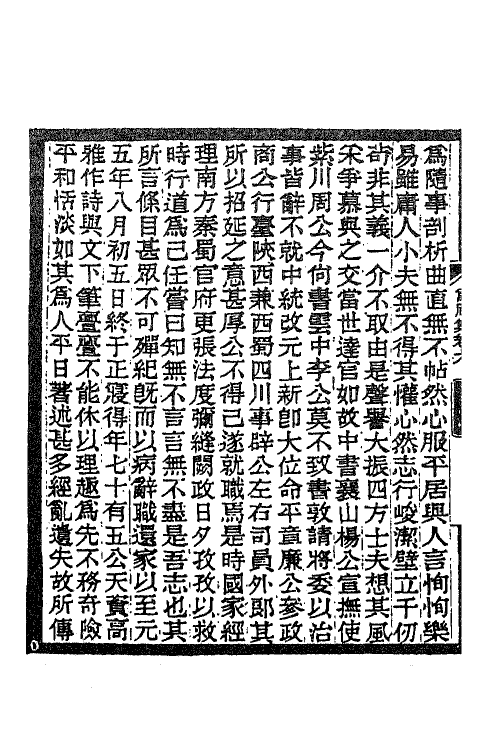 爲隨事剖析曲直無不帖然心服平居與人言恂恂樂
易雖庸人小夫無不得其懽心然志行峻潔壁立千仞
苟非其義一介不取由是聲譽大振四方士夫想其風
采爭慕與之交當世達官如故中書襄山楊公宣撫使
紫川周公今尚書雲中李公莫不致書敦請將委以治
事皆辭不就中統改元上新卽大位命平章廉公叅政
商公行臺陝西兼西蜀四川事辟公左右司員外郎其
所以招延之意甚厚公不得已遂就職焉是時國家經
理南方秦蜀官府更張法度彌縫闕政日夕孜孜以救
時行道爲己任嘗曰知無不言言無不盡是吾志也其
所言條目甚眾不可殫紀旣而以病辭職還家以至元
五年八月初五日終于正寢得年七十有五公天資高
雅作詩與文下筆亹亹不能休以理趣爲先不務奇險
平和恬淡如其爲人平日著述甚多經亂遺失故所傳